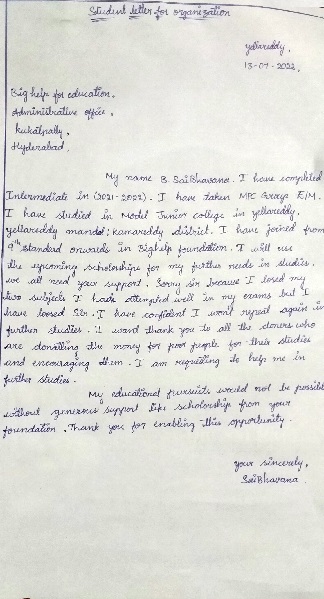 Student letter for organization
yellareddy,
13-07-2022,
Big help for education,
Administrative office,
kukatpally,
Hyderabad.
My name B. SaiBhavana. I have completed
Intermediate in (2021-2022). I have taken MPC Group E/M.
I have studied in Model Junior college in yellareddy,
yellareddy mandal; kamareddy district. I have joined from
9th standard onwards in Bighelp foundation. I will use
the upcoming scholarships for my further needs in studies.
we all need your support. Sorry sir because I losed my
two subjects I have attempted well in my exams but I
have loosed Sir. I have confident I won't repeat again in
further studies. I want thank you to all the donors who
are donating the money for poor people for their studies
and encouraging them. I am requesting to help me in
further studies.
My educational pursuits would not be possible
without generous support like scholarship from your
foundation. Thank you for enabling this opportunity.
your sincerely,
SaiBhavana.